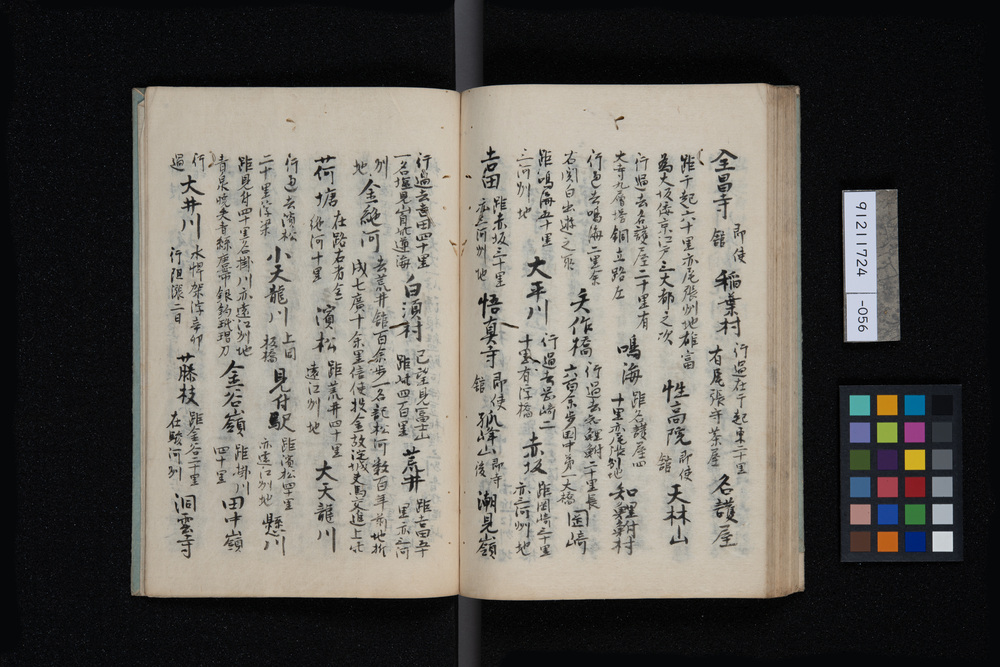 全昌寺 即使館 稲葉村 行過在千起東二十里 有尾張守茶屋 名護屋
距千起六十里亦尾張州地雄富
為大坂倭京江戶三大都之次 性高院 即使館 大林山
行過去名護屋二十里有
大寺九層塔銅立路左 鳴海 距名護屋四十里亦尾張州地 知鯉鮒村
行過去鳴海二里余
右関白出遊之所 矢作橋 行過去知鯉鮒二十里長六百余步国中第一大橋 岡崎
距鳴海五十里
三河州地 大平川 行過去岡崎二十里有浮橋 赤坂 距岡崎三十里亦三河州地
吉田 距赤坂三十里亦三河州地 悟真寺 即使館 孤峰山 即寺後 潮見嶺
行過去吉田四十里
一名塩見嶺 白須村 已望見富士山距此四百里 荒井 距吉田五十里亦三河
州地 金絶河 去荒井館百余步一名記松河数百年前地拆
成七廣十余里信使投金故 上此
荷塘 在路右者金絶河十里 濱松 距荒井四十里遠江州地 大天龍川
行過去濱松
二十里浮梁 小天龍川 上同板橋 見付駅 距濱松四十里亦遠江州地 懸川
距見付四十里名掛川亦遠江州地
金谷嶺 距掛川四十里 田中嶺
行
過 大井川 水悍架浮 辛卯行阻漲二日 藤枝 距金谷二十里在駿河州 洞雲寺
912111724
-056